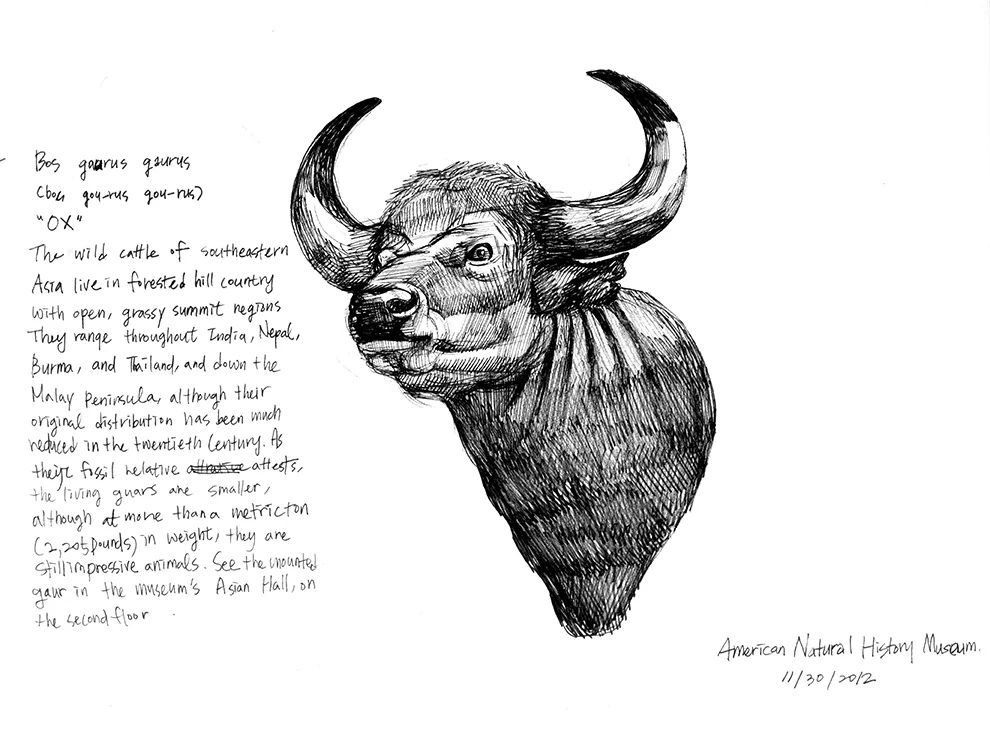 Bos gaurus gaurus
(bos gou-rus gou-rus)
"OX"
The wild cattle of southeastern
Asia live in forested hill country
with open, grassy summit regions
They range throughout India, Nepal,
Burma, and Thailand, and down the
Malay peninsula, although their
original distribution has been much
reduced in the twentieth century. As
their fossil relative attests,
the living guars are smaller,
although at more than a metric ton
(2,205 pounds) in weight, they are
still impressive animals. See the mounted
gaur in the museum's Asian Hall, on
the second floor
American Natural History Museum.
11/30/2012